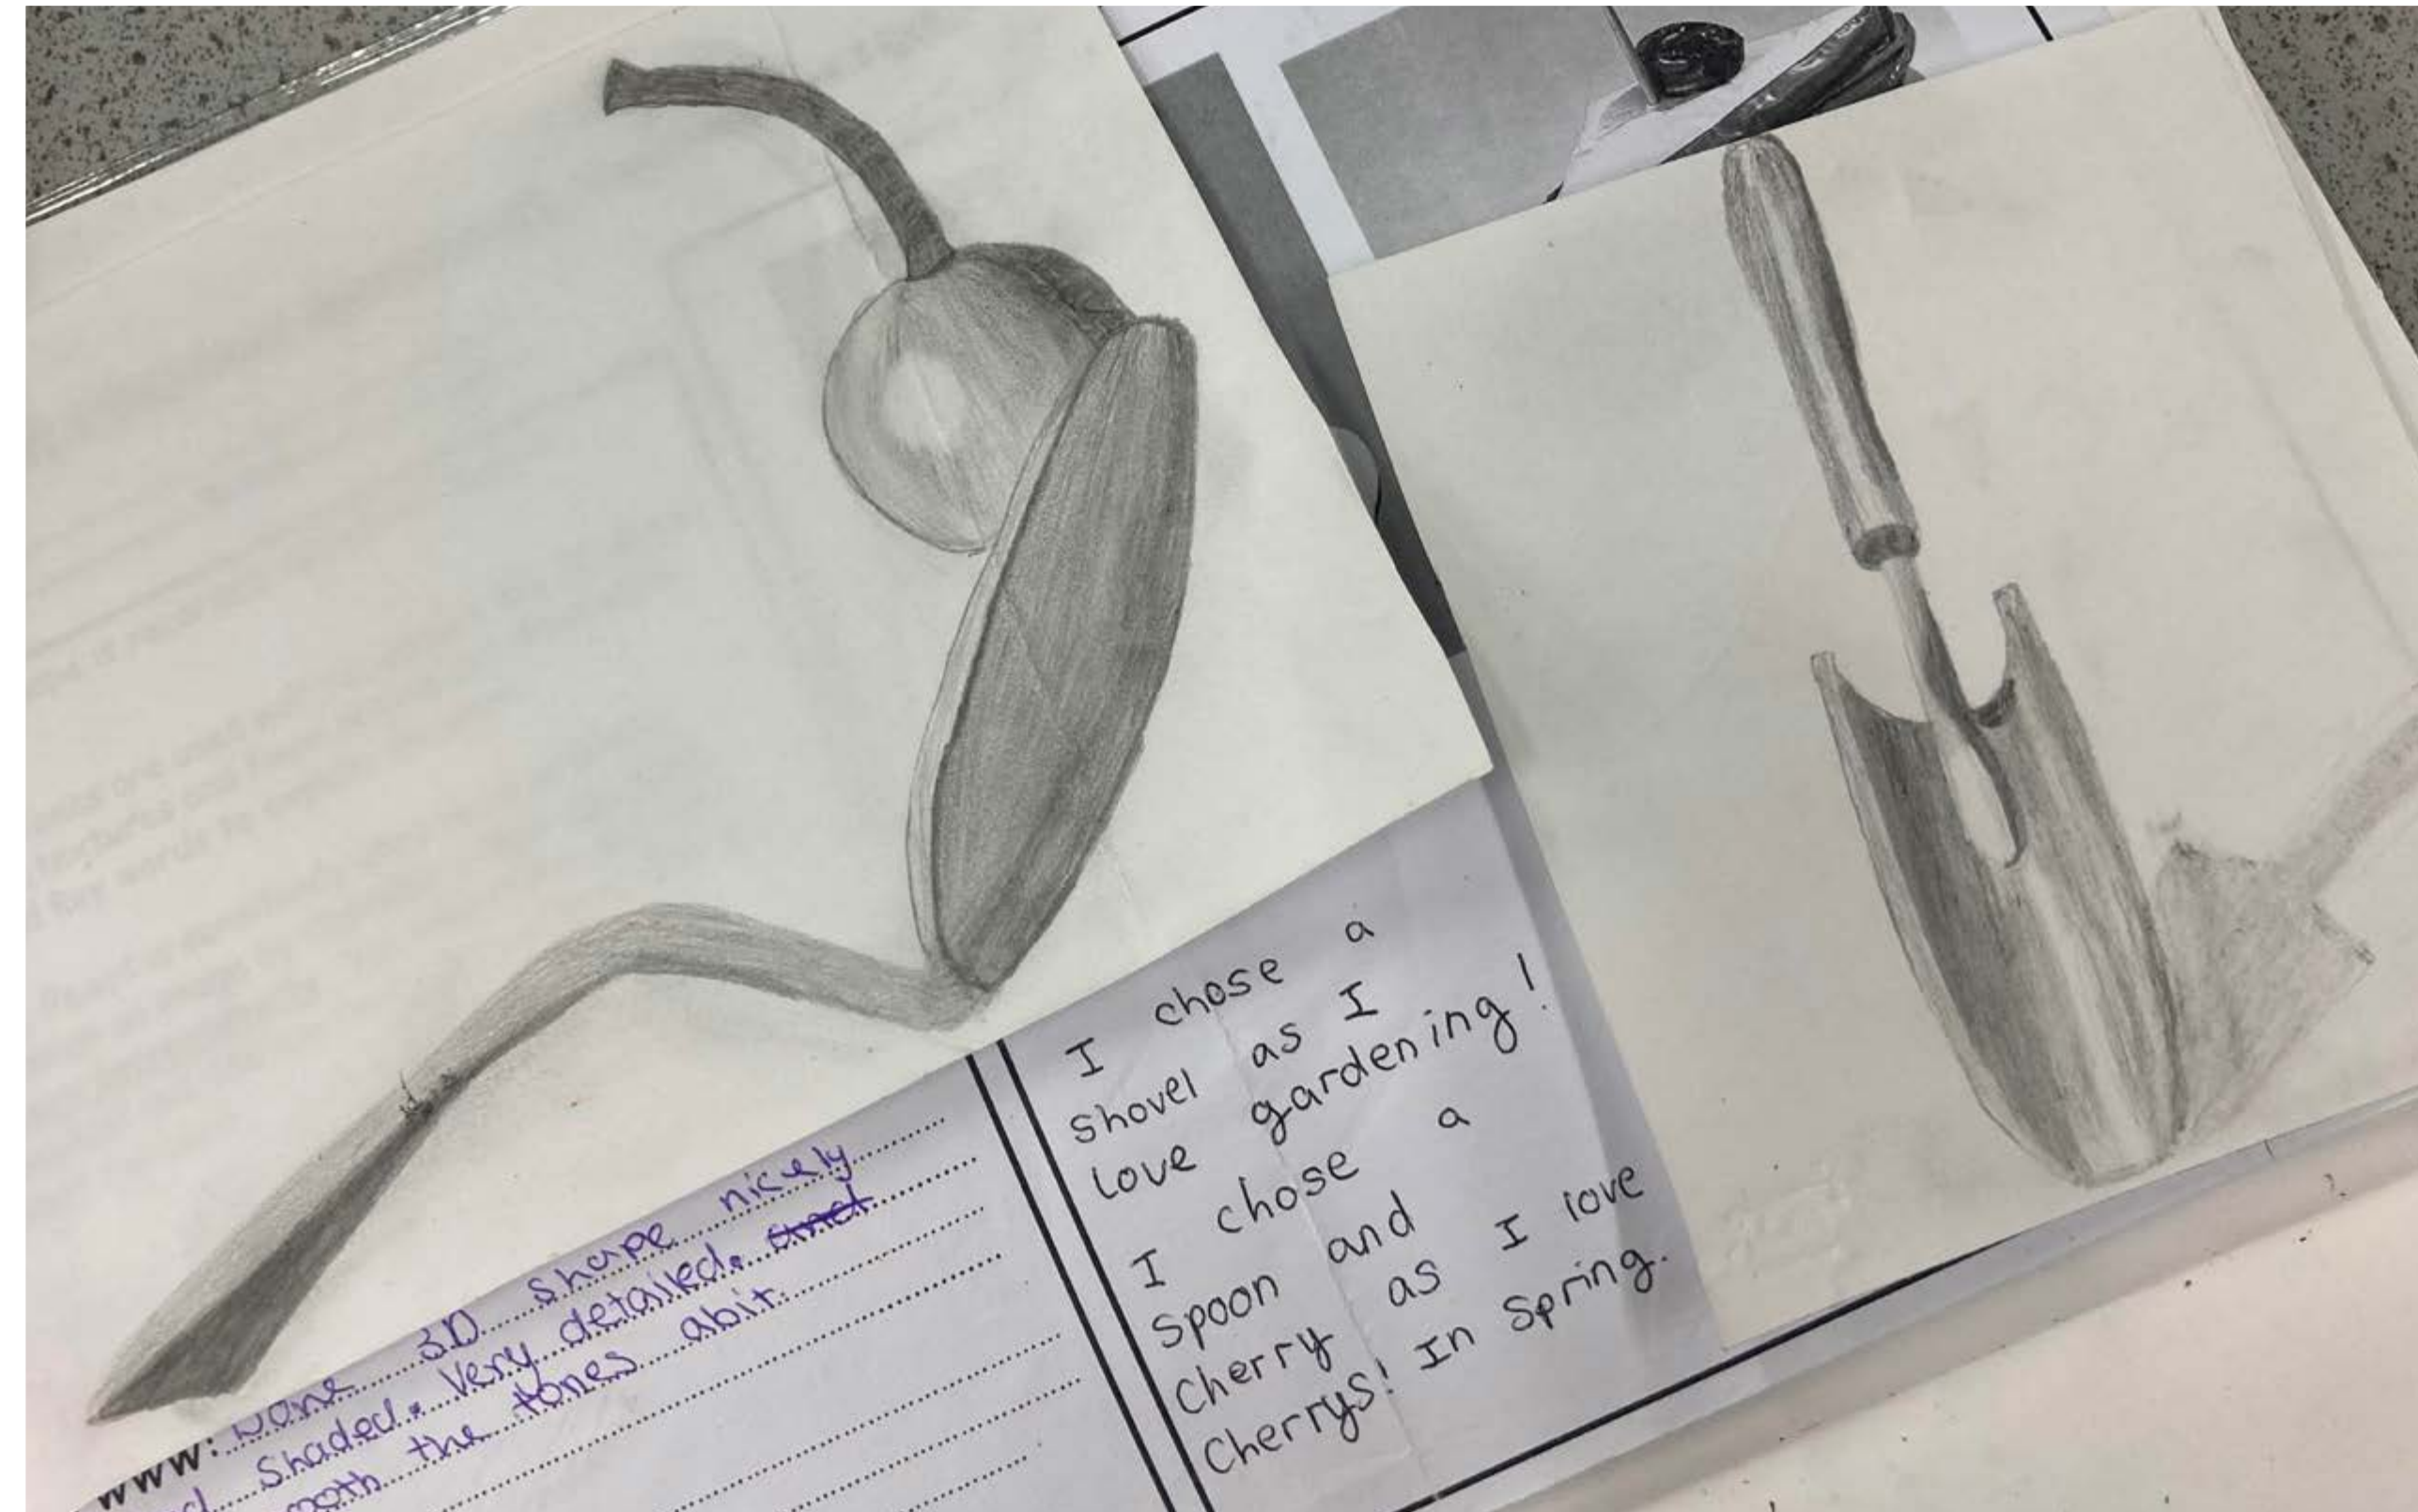 WWW: Done 3D shape nicely
Shaded. Very detailed. and
the tones abit.
I chose a
shovel as I
love gardening!
I chose a
Spoon and
Cherry as I love
Cherrys! In Spring.